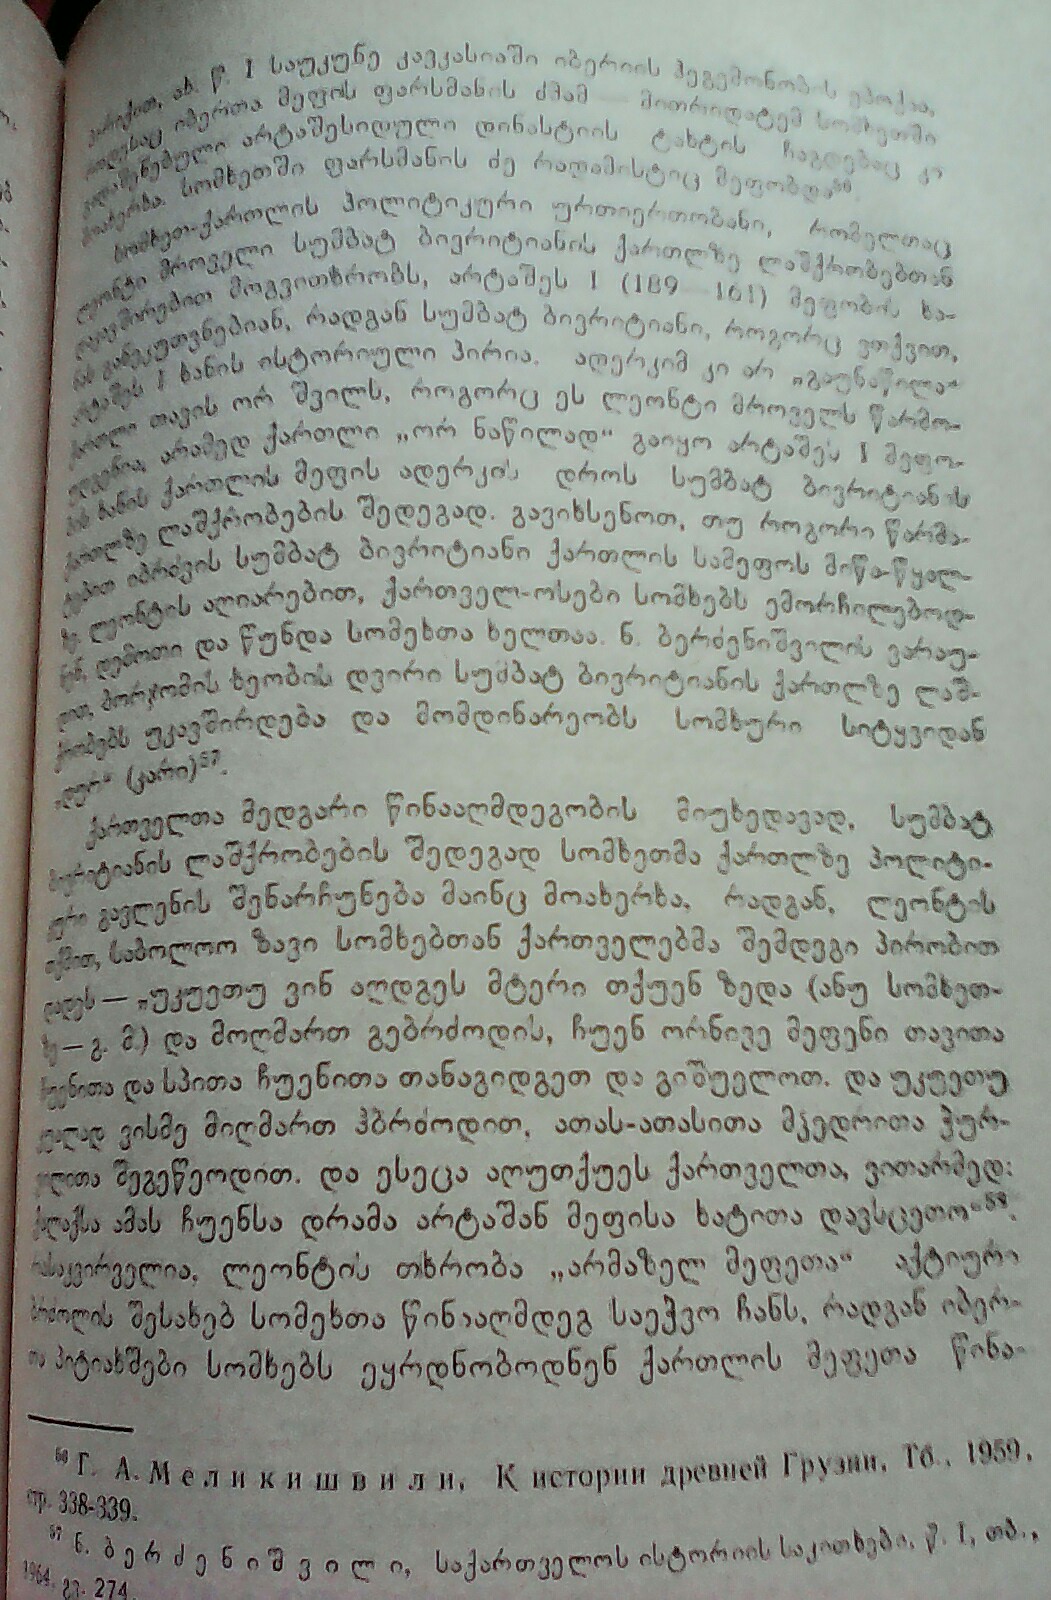 პირიქით, ახ. წ. I საუკუნე კავკასიაში იბერიის ჰეგემონობის ეპოქაა,
როდესაც იბერთა მეფის ფარსმანის ძმამ — მითრიდატემ სომხეთში
არტაშესიდული დინასტიის ტახტის ჩაგდებაც კი
მოახერხა. სომხეთში ფარსმანის ძე რადამისტიც მეფობდა⁵⁶.
სომხეთ-ქართლის პოლიტიკური ურთიერთობანი, რომელთაც
ლეონტი მროველი სუმბატ ბივრიტიანის ქართლზე ლაშქრობებთან
დაკავშირებით მოგვითხრობს, არტაშეს I (189—161) მეფობის ხა-
ნას განეკუთვნებიან, რადგან სუმბატ ბივრიტიანი, როგორც ვთქვით,
არტაშეს I ხანის ისტორიული პირია. ადერკიმ კი არ „გაუნაწილა“
ქართლი თავის ორ შვილს, როგორც ეს ლეონტი მროველს წარმო-
უდგენია, არამედ ქართლი „ორ ნაწილად“ გაიყო არტაშეს I მეფო-
ბის ხანის ქართლის მეფის ადერკის დროს სუმბატ ბივრიტიანის
ქართლზე ლაშქრობების შედეგად. გავიხსენოთ, თუ როგორი წარმა-
ტებით იბრძვის სუმბატ ბივრიტიანი ქართლის სამეფოს მიწა-წყალ-
ზე. ლეონტის აღიარებით, ქართველ-ოსები სომხებს ემორჩილებოდ-
ნენ, დემოთი და წუნდა სომეხთა ხელთაა. ნ. ბერძენიშვილის ვარაუ-
დით, ბორჯომის ხეობის დვირი სუმბატ ბივრიტიანის ქართლზე ლაშ-
ქრობებს უკავშირდება და მომდინარეობს სომხური სიტყვიდან
„დურ“ (კარი)⁵⁷.
ქართველთა მედგარი წინააღმდეგობის მიუხედავად, სუმბატ
ბივრიტიანის ლაშქრობების შედეგად სომხეთმა ქართლზე პოლიტი-
კური გავლენის შენარჩუნება მაინც მოახერხა, რადგან, ლეონტის
თქმით, საბოლოო ზავი სომხებთან ქართველებმა შემდეგი პირობით
დადეს — „უკუეთუ ვინ აღდგეს მტერი თქუენ ზედა (ანუ სომხეთ-
ზე — გ. მ.) და მოღმართ გებრძოდის, ჩუენ ორნივე მეფენი თავითა
ჩუენითა და სპითა ჩუენითა თანაგიდგეთ და გიშუელოთ. და უკუეთუ
ვისმე მიღმართ ჰბრძოდით, ათას-ათასითა მჴედრითა ჭურ-
ვილითა შეგეწეოდით. და ესეცა აღუთქუეს ქართველთა, ვითარმედ:
ქალაქსა ამას ჩუენსა დრამა არტაშან მეფისა ხატითა დავსცეთო“⁵⁸.
რასაკვირველია, ლეონტის თხრობა „არმაზელ მეფეთა“ აქტიური
ბრძოლის შესახებ სომეხთა წინააღმდეგ საეჭვო ჩანს, რადგან იბერ-
თა პიტიახშები სომხებს ეყრდნობოდნენ ქართლის მეფეთა წინა-
⁵⁶ Г. А. Меликишвили, К истории древней Грузии, Тб., 1959,
стр. 338-339.
⁵⁷ ნ. ბერძენიშვილი, საქართველოს ისტორიის საკითხები, წ. I, თბ.,
1964, გვ. 274.